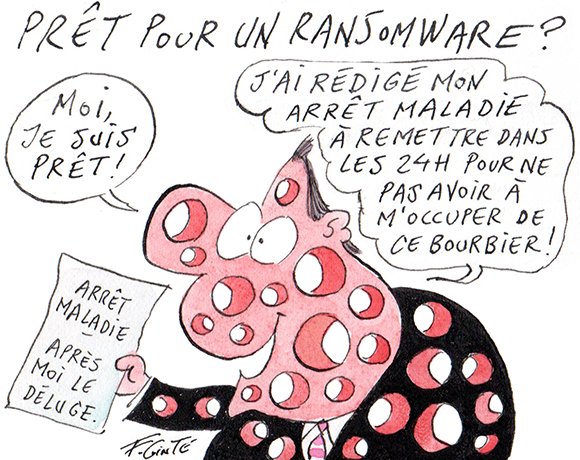 PRÊT POUR UN RANSOMWARE?
MOI,
JE SUIS
PRÊT!
J'AI RÉDIGÉ MON
ARRÊT MALADIE
À REMETTRE DANS
LES 24H POUR NE
PAS AVOIR À
M'OCCUPER DE
CE BOURBIER!
ARRÊT
MALADIE
–
APRÈS
MOI LE
DÉLUGE.
F. GINTÉ